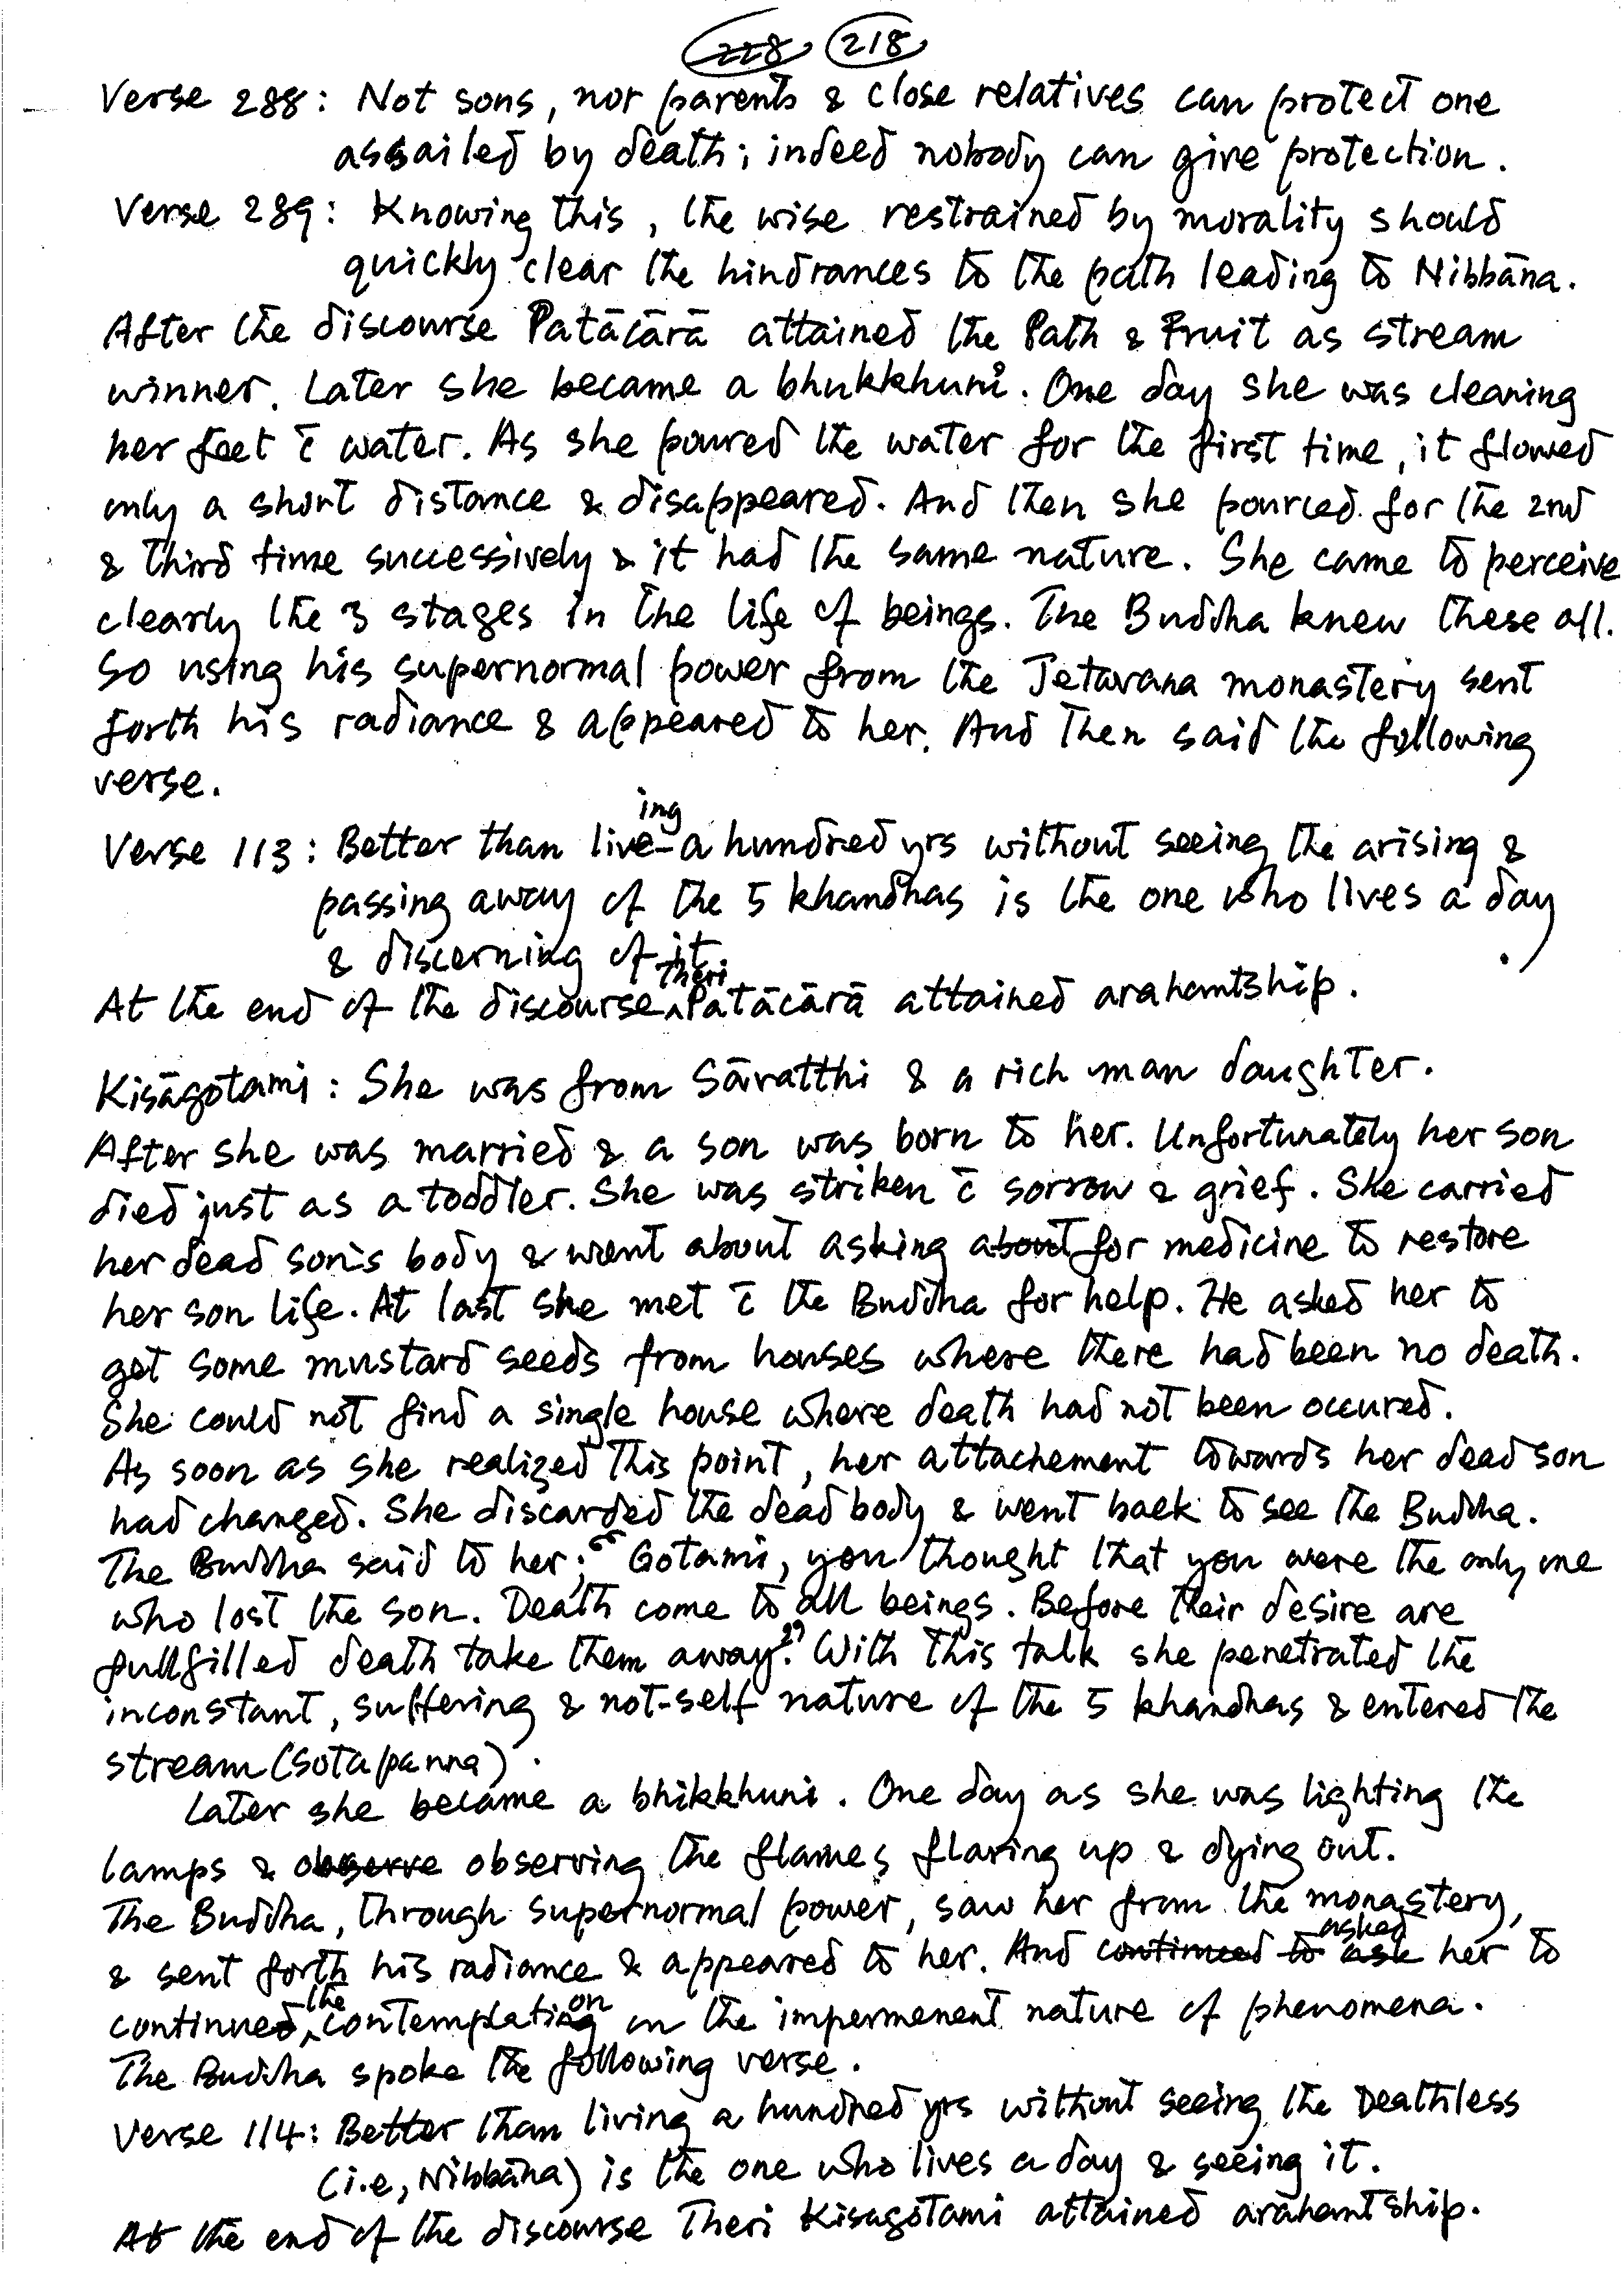 228 218
Verse 288: Not sons, nor parents & close relatives can protect one
assailed by death; indeed nobody can give protection.
Verse 289: Knowing this, the wise restrained by morality should
quickly clear the hindrances to the path leading to Nibbāna.
After the discourse Patācārā attained the Path & Fruit as stream
winner. Later she became a bhukkhuni. One day she was cleaning
her feet c̄ water. As she poured the water for the first time, it flowed
only a short distance & disappeared. And then she pourced for the 2nd
& third time successively & it had the same nature. She came to perceive
clearly the 3 stages in the life of beings. The Buddha knew these all.
So using his supernormal power from the Jetavana monastery sent
forth his radiance & appeared to her. And then said the following
verse.
Verse 113: Better than living a hundred yrs without seeing the arising &
passing away of the 5 khandhas is the one who lives a day
& discerning of it.
At the end of the discourse Theri Patācārā attained arahantship.
Kisāgotami: She was from Sāvatthi & a rich man daughter.
After she was married & a son was born to her. Unfortunately her son
died just as a toddler. She was striken c̄ sorrow & grief. She carried
her dead son's body & went about asking about for medicine to restore
her son life. At last she met c̄ the Buddha for help. He asked her to
get some mustard seeds from houses where there had been no death.
She could not find a single house where death had not been occured.
As soon as she realized this point, her attachement towards her dead son
had changed. She discarded the dead body & went back to see the Buddha.
The Buddha said to her; "Gotami, you thought that you were the only one
who lost the son. Death come to all beings. Before their desire are
fullfilled death take them away." With this talk she penetrated the
inconstant, suffering & not-self nature of the 5 khandhas & entered the
stream (sotapanna).
Later she became a bhikkhuni. One day as she was lighting the
lamps & observe observing the flames flaring up & dying out.
The Buddha, through supernormal power, saw her from the monastery,
& sent forth his radiance & appeared to her. And continued to ask asked her to
continued the contemplation on the impermenent nature of phenomena.
The Buddha spoke the following verse.
Verse 114: Better than living a hundred yrs without seeing the Deathless
(i.e, Nibbāna) is the one who lives a day & seeing it.
At the end of the discourse Theri Kisagotami attained arahantship.